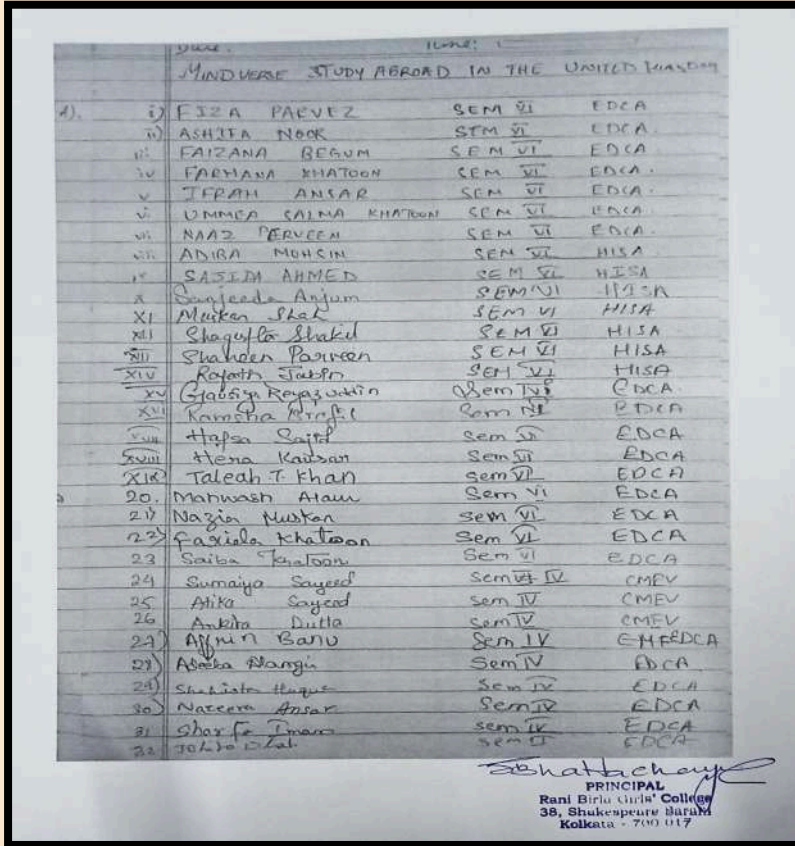 Date. Time:
MINDVERSE STUDY ABROAD IN THE UNITED KINGDOM
A). i) FIZA PARVEZ SEM VI EDCA
ii) ASHIFA NOOR SEM VI EDCA.
iii FAIZANA BEGUM SEM VI EDCA
iv FARHANA KHATOON SEM VI EDCA.
v IFRAH ANSAR SEM VI EDCA.
vi UMMEA SALMA KHATOON SEM VI EDCA
vii NAAZ PERVEEN SEM VI EDCA.
viii ADIBA MOHSIN SEM VI HISA
ix SAJIDA AHMED SEM VI HISA
X Sanjeeda Anjum SEM VI HISA
XI Muskan Shah SEM VI HISA
XII Shagufta Shakil SEM VI HISA
XIII Shaheen Parveen SEM VI HISA
XIV SEM VI HISA
XV Sem VI EDCA.
XVI Ramsha Sem VI EDCA
XVII Hafsa Sajid Sem VI EDCA
XVIII Hena Kausar Sem VI EDCA
XIX Taledh T. Khan Sem VI EDCA
20. Mahwash Alam Sem VI EDCA
21) Nazia Muskan Sem VI EDCA
22) Khatoon Sem VI EDCA
23 Saiba Khatoon Sem VI EDCA
24 Sumaiya Sayeed Sem IV CMEV
25 Atika Sayeed Sem IV CMEV
26 Ankita Dutta Sem IV CMEV
27) Afrin Banu Sem IV EDCA
28) Sem IV EDCA
29) Sem IV EDCA
30) Nazeera Ansar Sem IV EDCA
31 Imam Sem IV EDCA
32 EDCA
SBhattacharya
PRINCIPAL
Rani Birla Girls' College
38, Shakespeare Sarani
Kolkata - 700 017